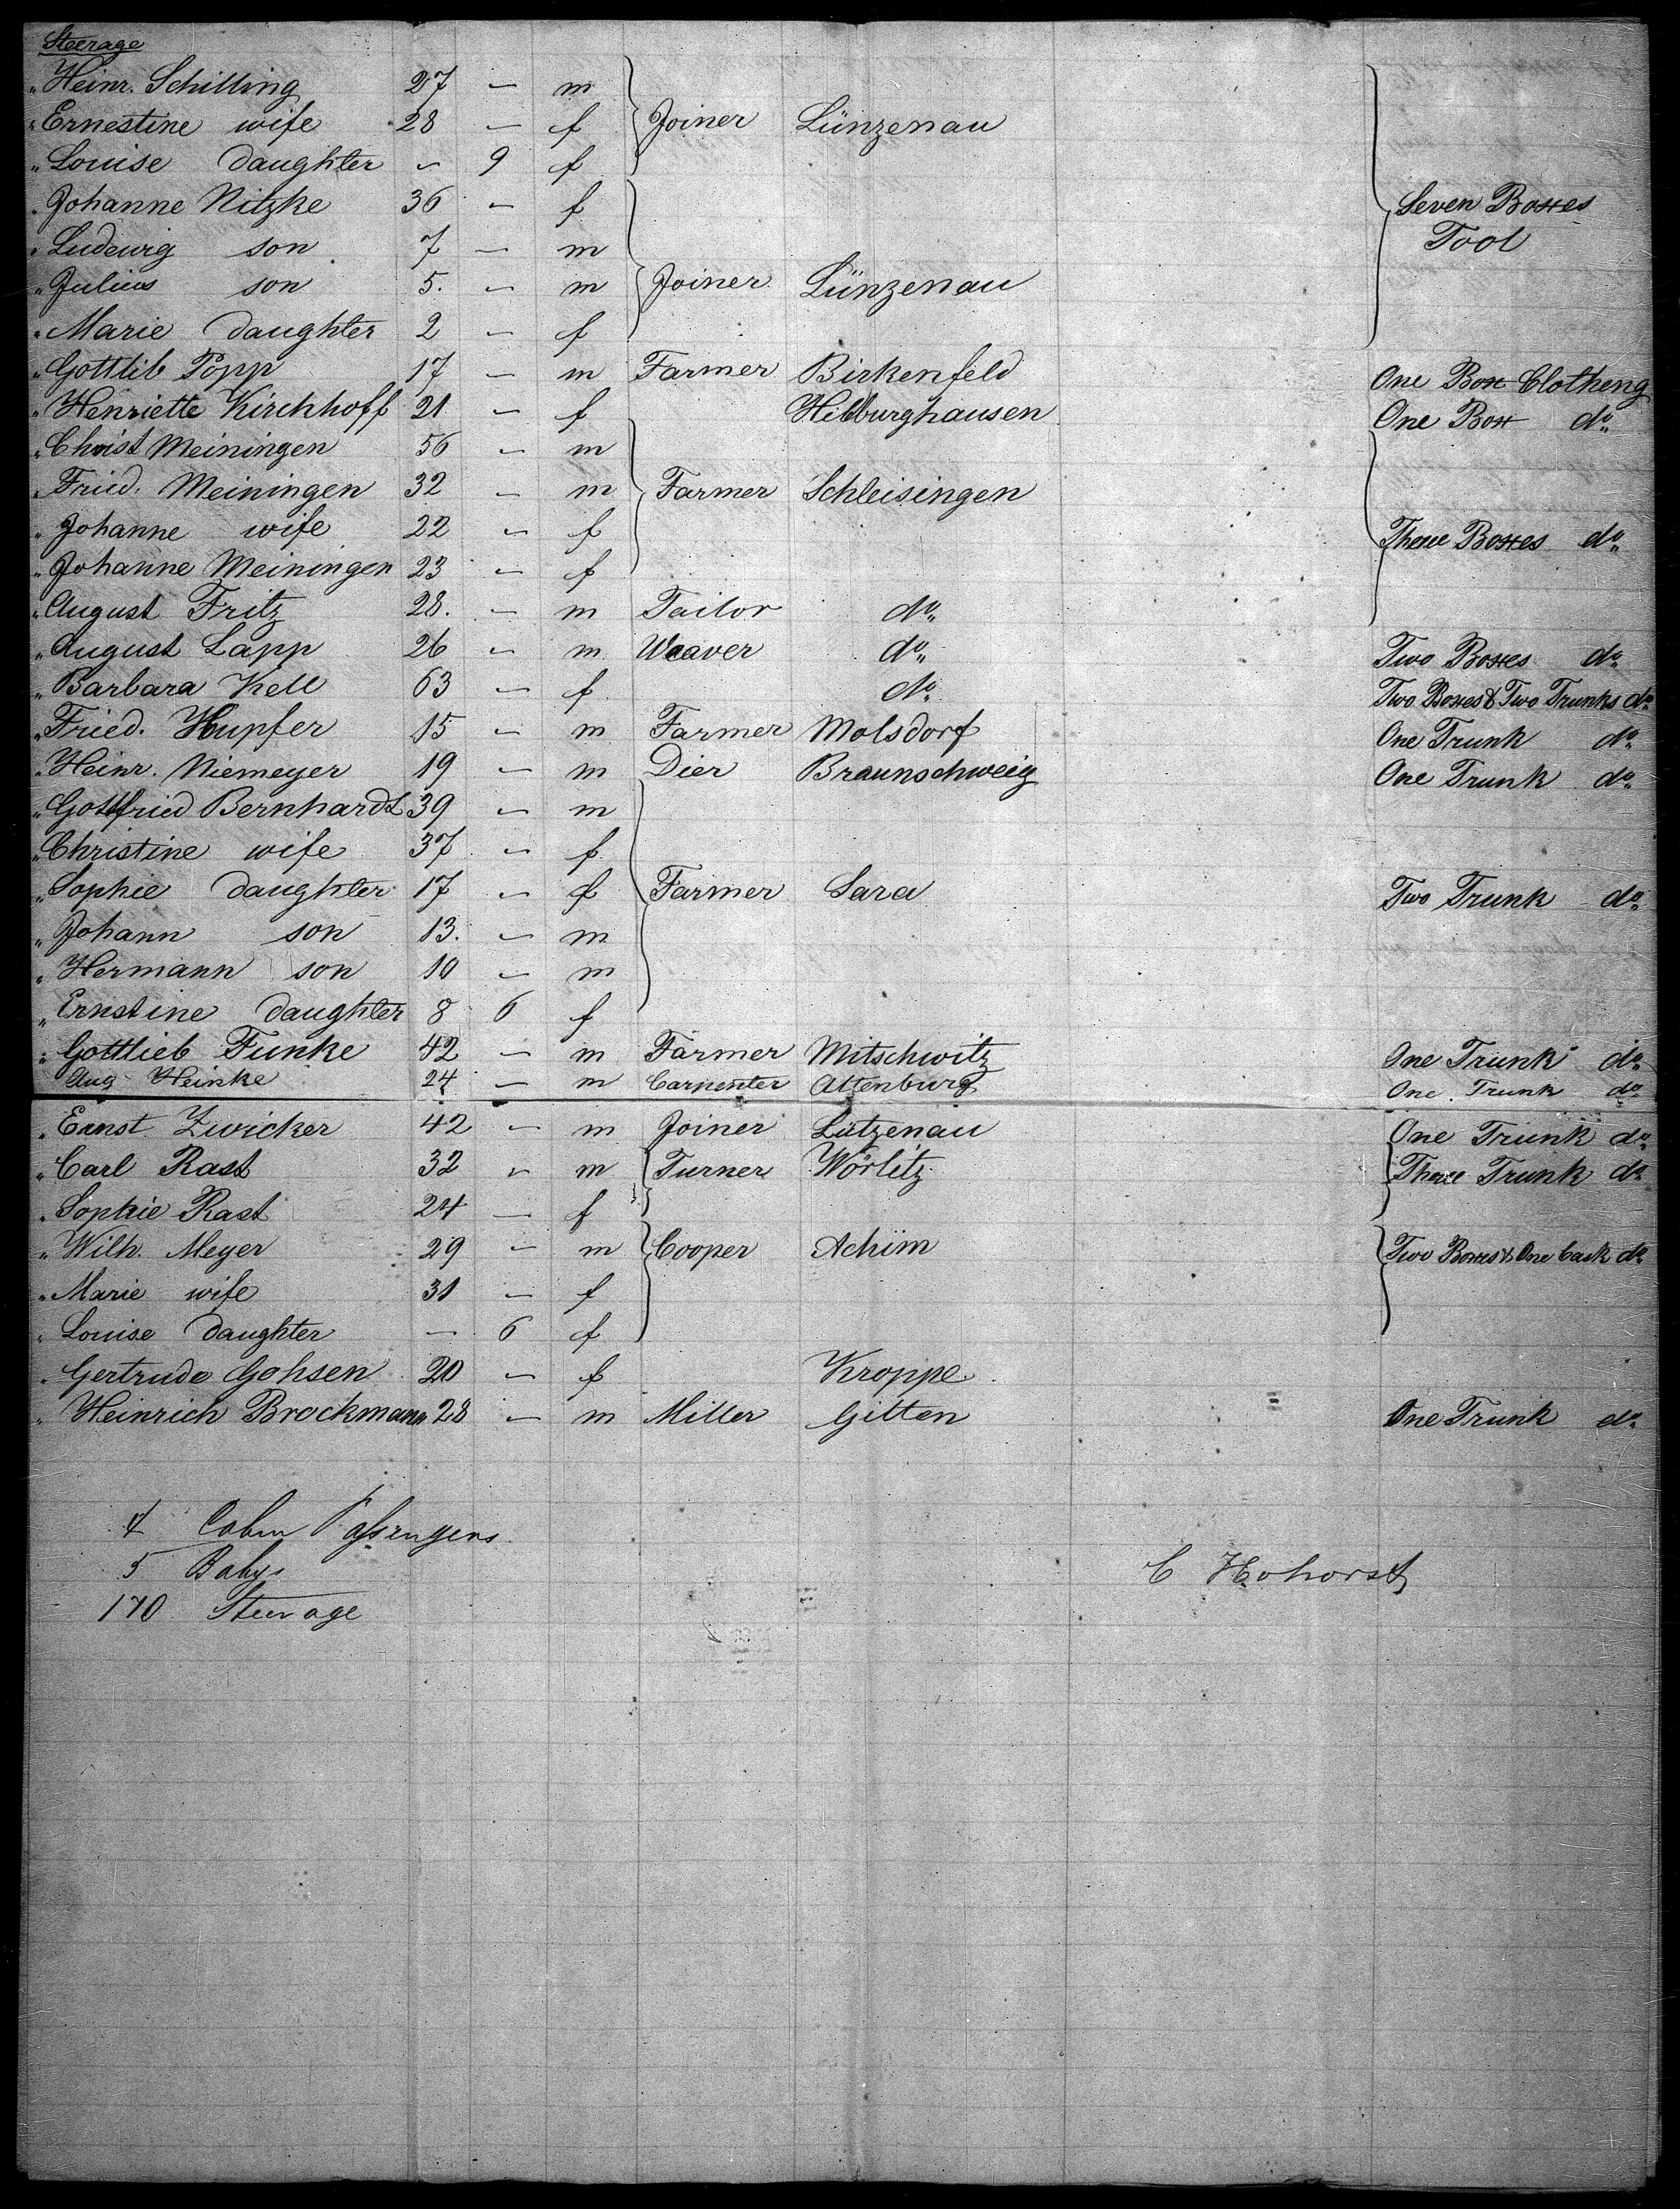 Steerage
" Heinr. Schilling 27 — m
" Ernestine wife 28 — f Joiner Lünzenau
" Louise daughter — 9 f
" Johanne Nitzke 36 — f Seven Boxes
" Ludewig son 7 — m Tool
" Julius son 5. — m Joiner Lünzenau
" Marie daughter 2 — f
" Gottlib Popp 17 — m Farmer Birkenfeld One Box Clotheng
" Henriette Kirchhoff 21 — f Hilburghausen One Box do
" Christ Meiningen 56 — m
" Fried. Meiningen 32 — m Farmer Schleisingen
" Johanne wife 22 — f Three Boxes do
" Johanne Meiningen 23 — f
" August Fritz 28. — m Tailor do
" August Lapp 26 — m Weaver do Two Boxes do
" Barbara Kell 63 — f do Two Boxes & Two Trunks do
" Fried. Hupfer 15 — m Farmer Molsdorf One Trunk do
" Heinr. Niemeyer 19 — m Dier Braunschweig One Trunk do
" Gottfried Bernhardt 39 — m
" Christine wife 37 — f
" Sophie daughter 17 — f Farmer Sara Two Trunk do
" Johann son 13. — m
" Hermann son 10 — m
" Ernstine daughter 8 6 f
" Gottlieb Funke 42 — m Farmer Mitschwitz One Trunk do
Aug Heinke 24 — m Carpenter Altenburg One Trunk do
" Ernst Zwicker 42 — m Joiner Lützenau One Trunk do
" Carl Rast 32 — m Turner Wörlitz Three Trunk do
" Sophie Rast 24 — f
" Wilh. Meyer 29 — m Cooper Achim Two Boxes & One Cask do
" Marie wife 31 — f
" Louise daughter — 6 f
" Gertrude Gohsen 20 — f Kroppe
" Heinrich Brockmann 28 — m Miller Gilten One Trunk do
4 Cabin Passengers
5 Babys C Hohorst
170 Steerage